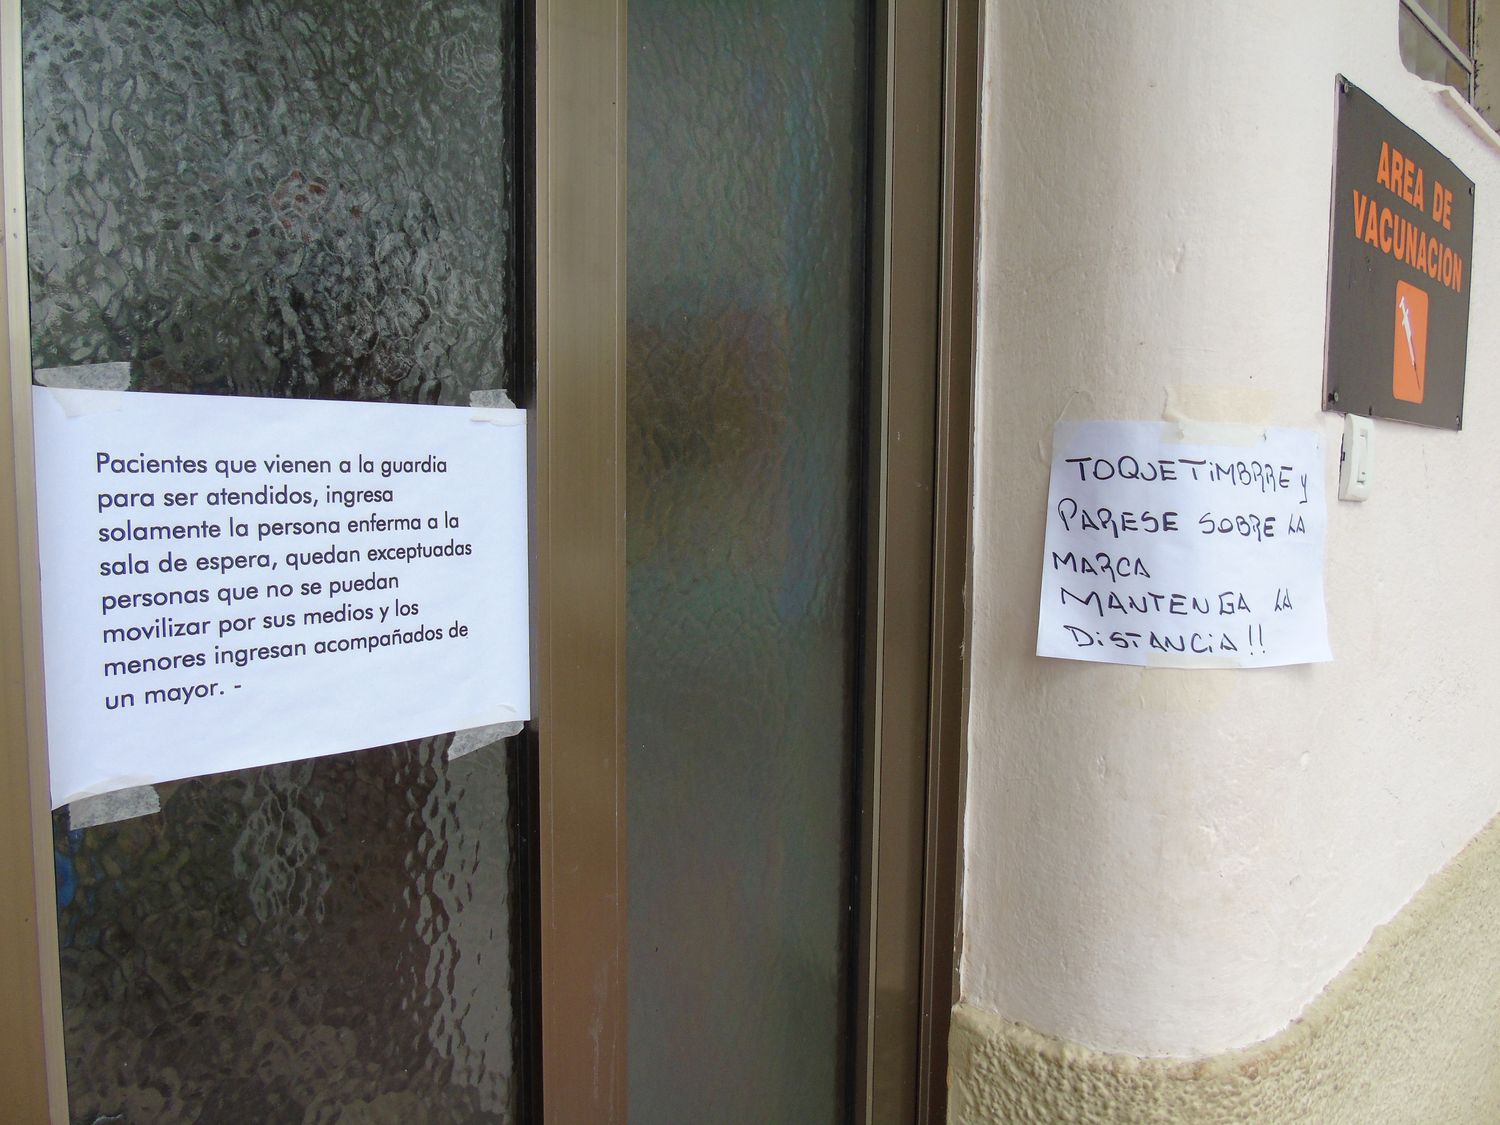 Pacientes que vienen a la guardia
para ser atendidos, ingresa
solamente la persona enferma a la
sala de espera, quedan exceptuadas
personas que no se puedan
movilizar por sus medios y los
menores ingresan acompañados de
un mayor. -
TOQUE TiMBRRE y
PARESE SOBRE LA
MARCA
MANTENGA LA
DiSTANCiA!!
AREA DE
VACUNACION